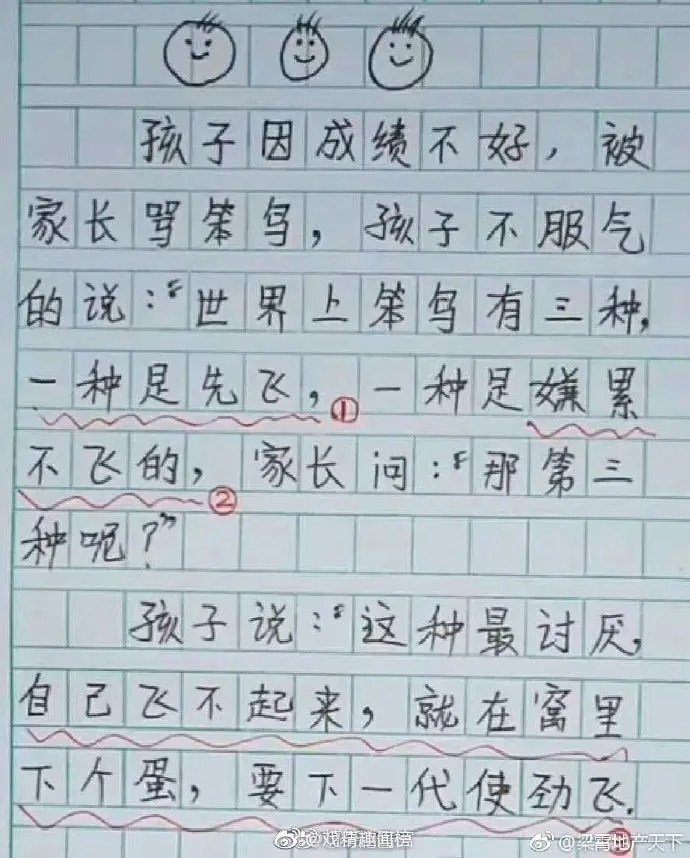 孩子因成绩不好，被
家长骂笨鸟，孩子不服气
的说：“世界上笨鸟有三种，
一种是先飞，①一种是嫌累
不飞的，②家长问：“那第三
种呢？”
孩子说：“这种最讨厌，
自己飞不起来，就在窝里
下个蛋，要下一代使劲飞.
③
@戏精趣闻榜
@梁霄地产天下